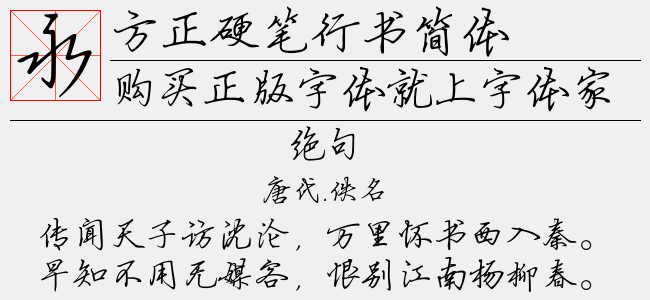 永
方正硬笔行书简体
购买正版字体就上字体家
绝句
唐代.佚名
传闻天子访沈沦，万里怀书西入秦。
早知不用无媒客，恨别江南杨柳春。